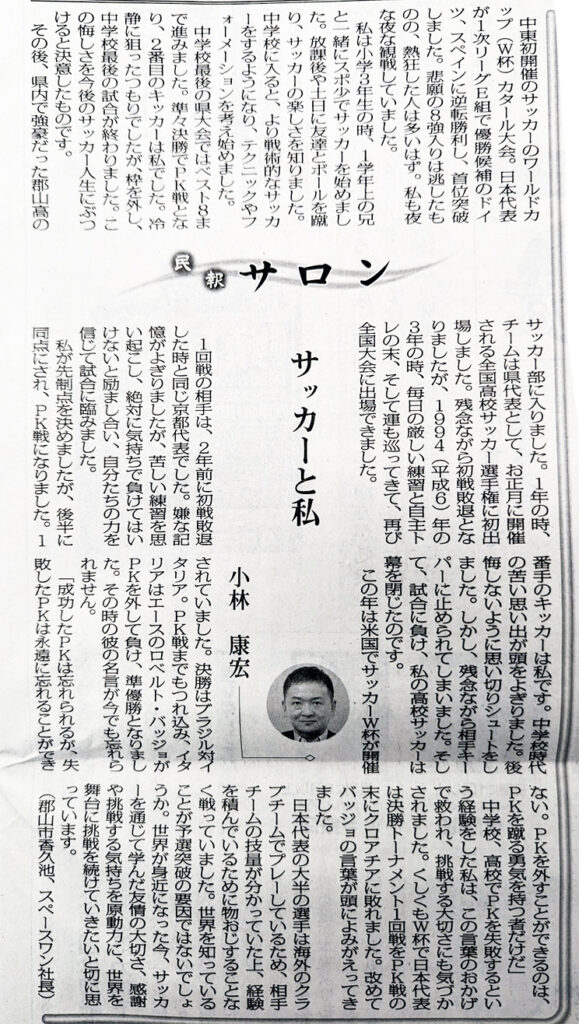 民報サロン
サッカーと私
小林 康宏
中東初開催のサッカーのワールドカ
ップ(W杯)カタール大会。日本代表
が1次リーグE組で優勝候補のドイ
ツ、スペインに逆転勝利し、首位突破
しました。悲願の8強入りは逃したも
のの、熱狂した人は多いはず。私も夜
な夜な観戦していました。
私は小学3年生の時、1学年上の兄
と一緒にスポ少でサッカーを始めまし
た。放課後や土日に友達とボールを蹴
り、サッカーの楽しさを知りました。
中学校に入ると、より戦術的なサッカ
ーをするようになり、テクニックやフ
ォーメーションを考え始めました。
中学校最後の県大会ではベスト8ま
で進みました。準々決勝でPK戦とな
り、2番目のキッカーは私でした。冷
静に狙ったつもりでしたが、枠を外し、
中学校最後の試合が終わりました。こ
の悔しさを今後のサッカー人生にぶつ
けると決意したものです。
その後、県内で強豪だった郡山高の
サッカー部に入りました。1年の時、
チームは県代表として、お正月に開催
される全国高校サッカー選手権に初出
場しました。残念ながら初戦敗退とな
りましたが、1994(平成6)年の
3年の時、毎日の厳しい練習と自主ト
レの末、そして運も巡ってきて、再び
全国大会に出場できました。
1回戦の相手は、2年前に初戦敗退
した時と同じ京都代表でした。嫌な記
憶がよぎりましたが、苦しい練習を思
い起こし、絶対に気持ちで負けてはい
けないと励まし合い、自分たちの力を
信じて試合に臨みました。
私が先制点を決めましたが、後半に
同点にされ、PK戦になりました。1
番手のキッカーは私です。中学校時代
の苦い思い出が頭をよぎりました。後
悔しないように思い切りシュートをし
ました。しかし、残念ながら相手キー
パーに止められてしまいました。そし
て、試合に負け、私の高校サッカーは
幕を閉じたのです。
この年は米国でサッカーW杯が開催
されていました。決勝はブラジル対イ
タリア。PK戦までもつれ込み、イタ
リアはエースのロベルト・バッジョが
PKを外して負け、準優勝となりまし
た。その時の彼の名言が今でも忘れら
れません。
「成功したPKは忘れられるが、失
敗したPKは永遠に忘れることができ
ない。PKを外すことができるのは、
PKを蹴る勇気を持つ者だけだ」
中学校、高校でPKを失敗するとい
う経験をした私は、この言葉のおかげ
で救われ、挑戦する大切さにも気づか
されました。くしくもW杯で日本代表
は決勝トーナメント1回戦をPK戦の
末にクロアチアに敗れました。改めて
バッジョの言葉が頭によみがえってき
ました。
日本代表の大半の選手は海外のクラ
ブチームでプレーしているため、相手
チームの技量が分かっていた上、経験
を積んでいるために物おじすることな
く戦っていました。世界を知っている
ことが予選突破の要因ではないでしょ
うか。世界が身近になった今、サッカ
ーを通じて学んだ友情の大切さ、感謝
や挑戦する気持ちを原動力に、世界を
舞台に挑戦を続けていきたいと切に思
っています。
(郡山市香久池、スペースワン社長)